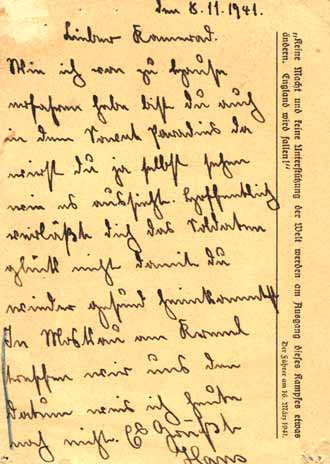 Den 8.11.1941.
Lieber Kamerad.
Wie ich von zu Hause
erfahren habe bist du auch
in dem Soviet Paradies da
wirst du ja selbst sehen
wie es aussieht. Hoffentlich
verläßt dich das Soldaten
glück nicht damit du
wieder gesund heimkommst
In Moskau am Kreml
treffen wir uns den
Datum weis ich heute
noch nicht. Es Grüßt
Hans
„Keine Macht und keine Unterstützung der Welt werden am Ausgang dieses Kampfes etwas
ändern. England wird fallen!“
Der Führer am 16. März 1941.